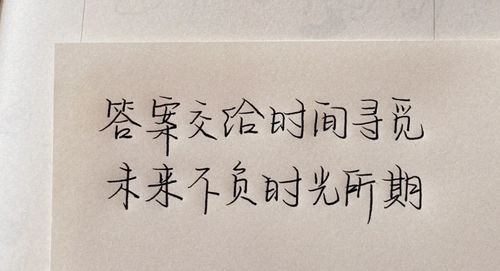 答案交给时间寻觅
未来不负时光所期